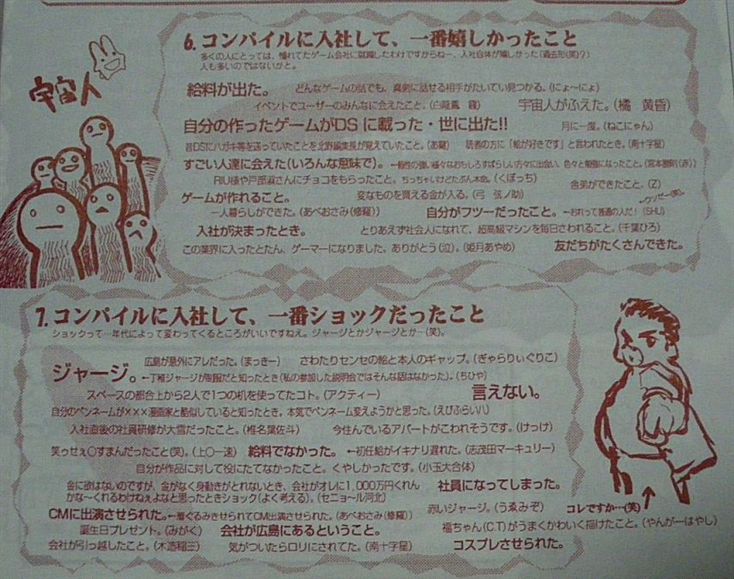 宇宙人
6. コンパイルに入社して、一番嬉しかったこと
多くの人にとっては、憧れてたゲーム会社に就職したわけですからねー、入社自体が嬉しかった(過去形(笑)?
人も多いのではないかと。
給料が出た。 どんなゲームの話でも、真剣に話せる相手がたいてい見つかる。(にょ〜にょ)
イベントでユーザーのみんなに会えたこと。 宇宙人がふえた。(橘 黄昏)
自分の作ったゲームがDSに載った・世に出た!! 月に一度。(ねこにゃん)
昔DSにハガキ等を送っていたことを北野編集長が覚えていたこと。 読者の方に「絵が好きです」と言われたとき。(南十字星)
すごい人達に会えた(いろんな意味で)。
RIU様や戸部淑さんにチョコをもらったこと。ちっちゃいけどたぶん本命。(くぼっち)
ゲームが作れること。 変なものを買える金が入る。(弓 弦ノ助) 舎弟ができたこと。(Z)
一人暮らしができた。(あべおさみ(修羅)) 自分がフツーだったこと。 ―おれって普通の人だ!(SHU)
入社が決まったとき。 とりあえず社会人になれて、超高級マシンを毎日さわれること。(千葉ひろ)
この業界に入ったとたん、ゲーマーになりました。ありがとう(泣)。(姫月あやめ) 友だちがたくさんできた。
7. コンパイルに入社して、一番ショックだったこと
ショックって…年代によって変わってくるところがいいですねえ。ジャージとかジャージとか…(笑)。
広島が意外にアレだった。(まっきー) さわたりセンセの絵と本人のギャップ。(ぎゃらりぃぐりこ)
ジャージ。 ←丁稚ジャージが制服だと知ったとき(私の参加した説明会ではそんな話はなかった)。(ちひや)
スペースの都合上から2人で1つの机を使ってたコト。(アクティー) 言えない。
自分のペンネームが×××漫画家と酷似していると知ったとき。本気でペンネーム変えようかと思った。(えびふらい八)
入社直後の社員研修が大雪だったこと。(椎名葉佐斗) 今住んでいるアパートがこわれそうです。(けっけ)
笑ゥせぇ○すまんだったこと(笑)。(上○一速) 給料でなかった。 ←初任給がイキナリ遅れた。(志茂田マーキュリー)
自分が作品に対して役にたてなかったこと。くやしかったです。(小玉大合体)
金に欲はないのですが、金がなく身動きがとれないとき、会社がオレに1,000万円くれん
かな〜くれるわけねぇよなと思ったときショック(よく考える)。(セニョール河北) 社員になってしまった。
CMに出演させられた。 ←着ぐるみきせられてCM出演させられた。(あべおさみ(修羅)) 赤いジャージ。(うゑみぞ)
誕生日プレゼント。(みがぐ) 会社が広島にあるということ。 福ちゃん(C.T)がうまくかわいく描けたこと。(やんが…はやし)
会社が引っ越したこと。(木造稲三) 気がついたらロリにされてた。(南十字星) コスプレさせられた。
コレですか…(笑)